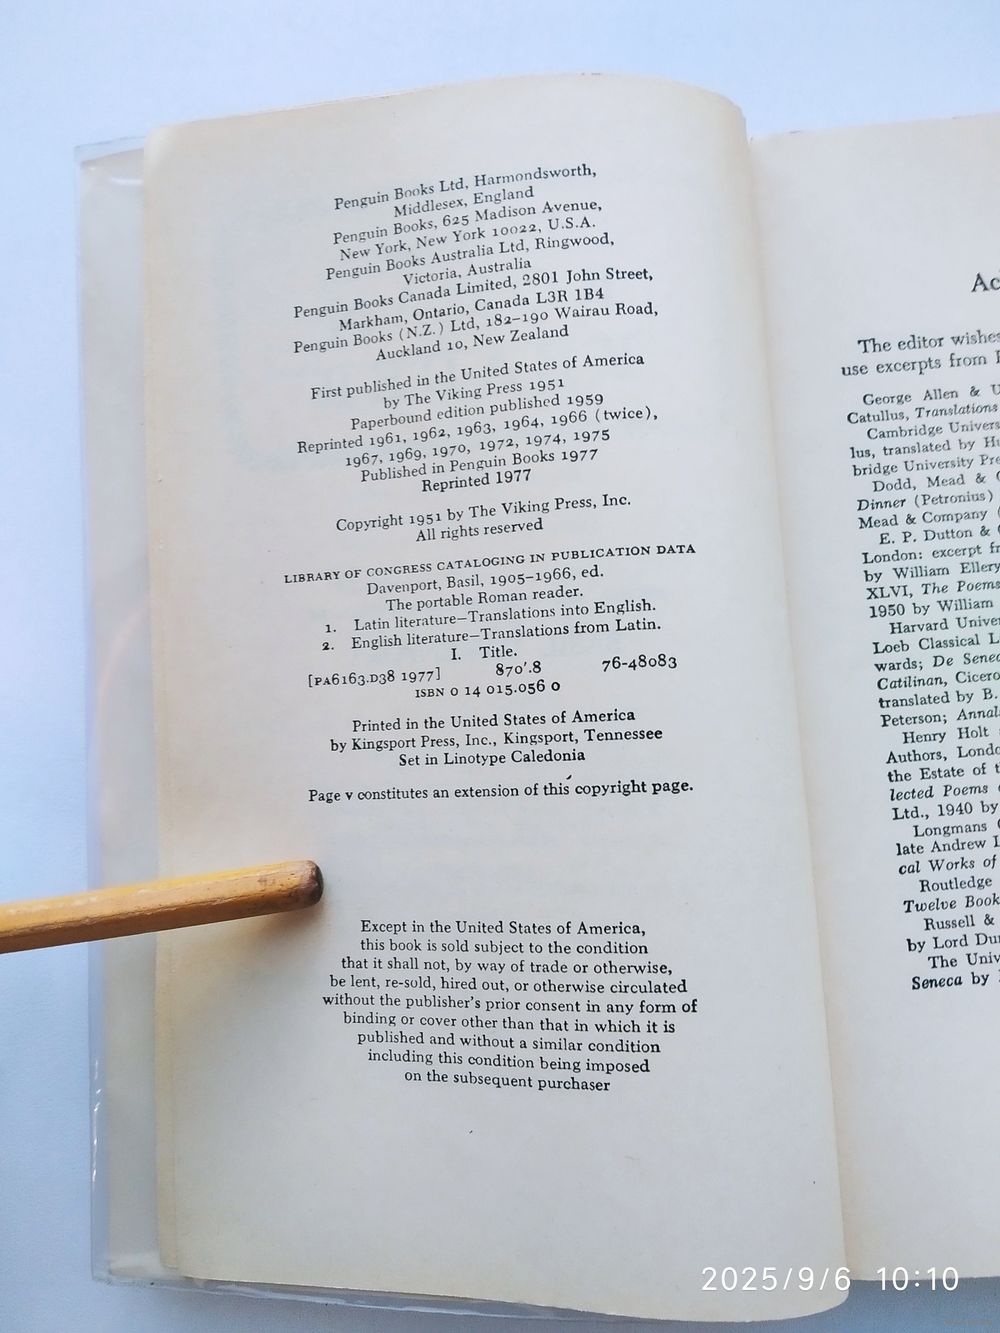 Penguin Books Ltd, Harmondsworth,
Middlesex, England
Penguin Books, 625 Madison Avenue,
New York, New York 10022, U.S.A.
Penguin Books Australia Ltd, Ringwood,
Victoria, Australia
Penguin Books Canada Limited, 2801 John Street,
Markham, Ontario, Canada L3R 1B4
Penguin Books (N.Z.) Ltd, 182–190 Wairau Road,
Auckland 10, New Zealand
First published in the United States of America
by The Viking Press 1951
Paperbound edition published 1959
Reprinted 1961, 1962, 1963, 1964, 1966 (twice),
1967, 1969, 1970, 1972, 1974, 1975
Published in Penguin Books 1977
Reprinted 1977
Copyright 1951 by The Viking Press, Inc.
All rights reserved
LIBRARY OF CONGRESS CATALOGING IN PUBLICATION DATA
Davenport, Basil, 1905–1966, ed.
The portable Roman reader.
1. Latin literature—Translations into English.
2. English literature—Translations from Latin.
I. Title.
[PA6163.D38 1977] 870'.8 76-48083
ISBN 0 14 015.056 0
Printed in the United States of America
by Kingsport Press, Inc., Kingsport, Tennessee
Set in Linotype Caledonia
Page v constitutes an extension of this copyright page.
Except in the United States of America,
this book is sold subject to the condition
that it shall not, by way of trade or otherwise,
be lent, re-sold, hired out, or otherwise circulated
without the publisher's prior consent in any form of
binding or cover other than that in which it is
published and without a similar condition
including this condition being imposed
on the subsequent purchaser
Ac
The editor wishes
use excerpts from
George Allen & U
Catullus, Translations
Cambridge Univers
lus, translated by Hu
bridge University Pre
Dodd, Mead & C
Dinner (Petronius)
Mead & Company (
E. P. Dutton &
London: excerpt fr
by William Ellery
XLVI, The Poems
1950 by William
Harvard Unive
Loeb Classical L
wards; De Senec
Catilinan, Cicero
translated by B.
Peterson; Annal
Henry Holt
Authors, Londo
the Estate of t
lected Poems
Ltd., 1940 by
Longmans
late Andrew L
cal Works of
Routledge
Twelve Book
Russell &
by Lord Dun
The Univ
Seneca by
2025/9/6 10:10